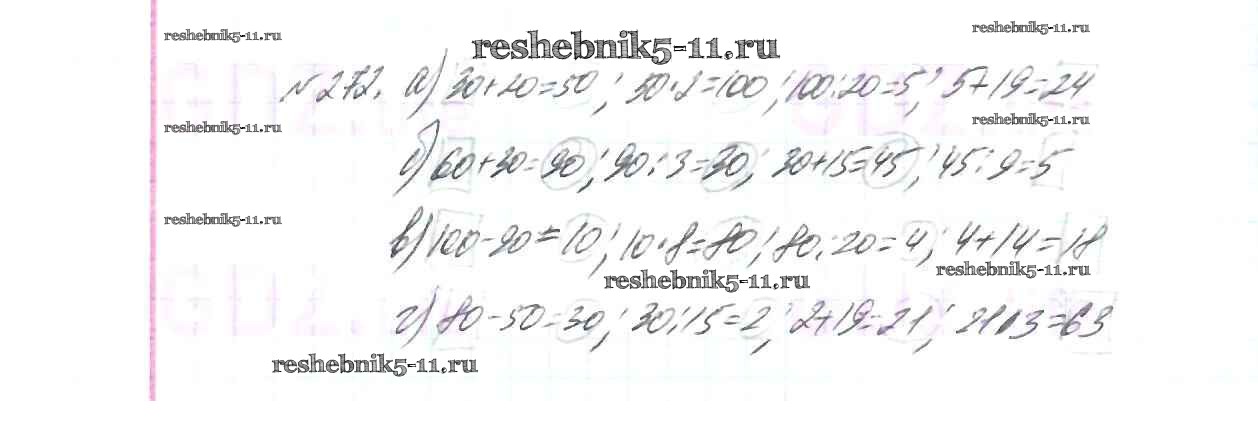 reshebnik5-11.ru
reshebnik5-11.ru
reshebnik5-11.ru
№272. а) 30+20=50; 50·2=100; 100:20=5; 5+19=24
reshebnik5-11.ru
reshebnik5-11.ru
б) 60+30=90; 90:3=30; 30+15=45; 45:9=5
reshebnik5-11.ru
в) 100-90=10; 10·8=80; 80:20=4; 4+14=18
reshebnik5-11.ru
reshebnik5-11.ru
г) 80-50=30; 30:15=2; 2+19=21; 21·3=63
reshebnik5-11.ru